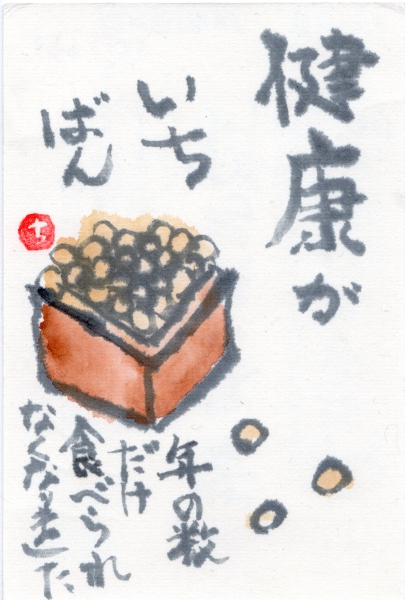 健康が
いち
ばん
年の数
だけ
食べられ
なくなりました